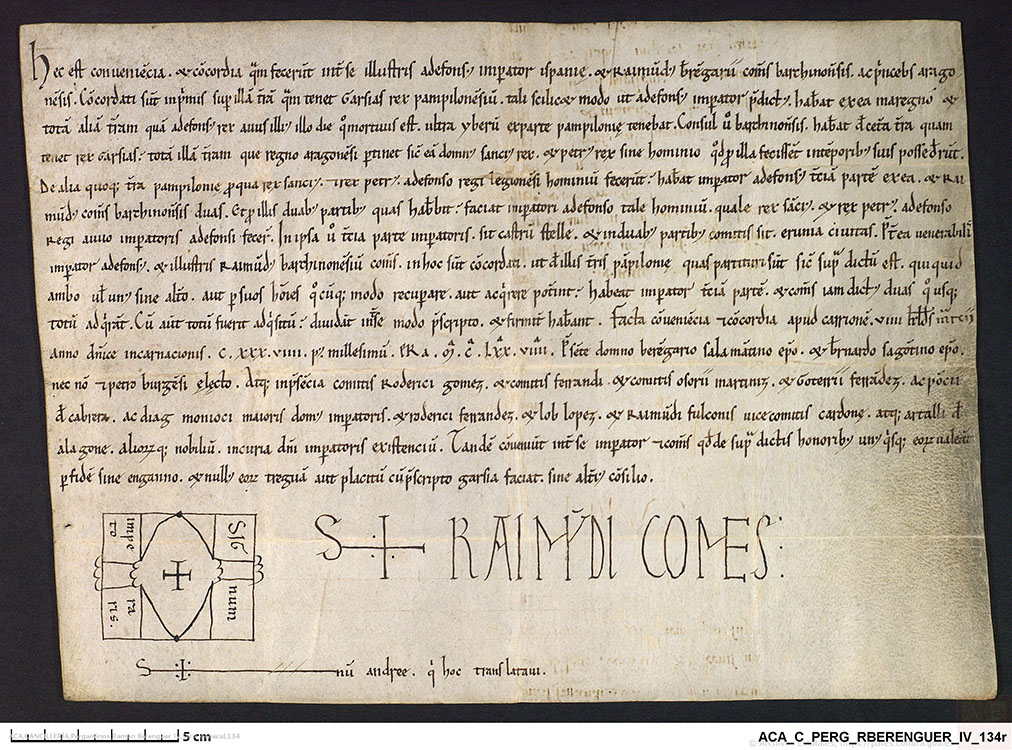 Hec est conveniẽcia. & cõcordia q̃m fecerũt int̃ se illustris adefonsꝯ imꝑator ispanie. & Raimũdꝯ bẽrẽgarii com̃s barchinoñsis. ac p̃ncebs arago
nẽsis. Cõcordati sũt inp̃mis suꝑ illã t̃rã q̃m tenet Garsias rex pampilonẽsiũ. tali scilic& modo ut adefonsꝯ imꝑator p̃dictꝯ. hab̃at exea maregno &
totã aliã t̃ram quã adefonsꝯ rex avus illiꝯ illo die q̃o mortuus est. ultra yberũ exparte pampilonie tenebat. Consul ũ barchinoñsis. hab̃at d̃ ceta t̃ra quam
tenet rex Garsias. totã illã t̃ram que regno aragonẽsi ꝑtinet sic̃ eã domnꝯ sanciꝯ rex. & petrꝯ rex sine hominio q̃d ꝓ illa fecissẽt intẽporibꝯ suis possed̃rũt.
De alia quoqꝫ t̃ra pampilonie ꝓqua rex sanciꝯ. ⁊ rex petrꝯ. adefonso regi legionẽsi hominiũ fecerũt. hab̃at imꝑator adefonsꝯ t̃ciã partẽ exea. & Rai
mũdꝯ com̃s barchinoñsis duas. Et ꝓ illis duabꝯ partibꝯ quas hab̃bit. faciat imꝑatori adefonso tale hominiũ. quale rex sãciꝯ. & rex petrꝯ. adefonso
regi avuo imꝑatoris adefonsi fecer̃. In ipsa ũ t̃cia parte imꝑatoris. sit castrũ stelle. & induabꝯ partibꝯ comitis sit. erunia civitas. P̃t̃ea venerabilis
imꝑator adefonsꝯ. & illustris Raimũdꝯ barchinoñsiũ com̃s. in hoc sũt cõcordati. ut d̃ illis t̃ris pãpilonie quas partituri sũt sic̃ sup̃ dictũ est. quiquid
ambo ul̃ unꝯ sine alt̃o. aut ꝑ suos hoĩes q̃o cũqꝫ modo recuꝑare. aut acq̃rere pot̃int. habeat imꝑator t̃ciã partẽ. & com̃s iam dictꝯ duas q̃o usqꝫ
totũ adq̃rãt. Cũ aũt totũ fuerit adq̃sitũ. dividãt int̃ se modo p̃scripto. & firmit̃ hab̃ant. Facta cõveniẽcia ⁊ cõcordia apud carrionẽ. viiii kl̃ds marcii
anno dñice incarnacionis. c. xxx. viiii. pꝯ millesimũ. ERa. m̃. c̃. Lxx̃. viĩi. P̃sẽte domno berẽgario salamãtino ep̃o. & b̃rnardo sagõtino ep̃o.
nec nõ ⁊ petro burgẽsi electo. Atqꝫ inp̃sẽcia comitis Roderici gomez. & comitis ferrandi. & comitis osorii martiniz. & Goterrii ferrãdez. ac põcii
d̃ cabrera. ac diag monioci maioris domꝯ imꝑatoris. & roderici ferrandez. & lob lopez. & Raimũdi fulconis vicecomitis cardone. atqꝫ artalli d̃
alagone. alioꝝqꝫ nobiliũ. incuria dñi imꝑatoris existenciũ. Tandẽ cõveniũt int̃ se imꝑator ⁊ com̃s qd̃ de sup̃ dictis honoribꝯ unꝯ q̃sqꝫ eoꝝ valeat
ꝑ fidẽ sine enganno. & nullꝯ eoꝝ treguã aut placitũ cũ p̃scripto garsia faciat. sine alt̃iꝯ cõsilio.
SIG
num
impe
ra
to
ris.
S + RAIMŨDI COMES:
S + nũ andree. q̃i hoc translatavi.
5 cm
ACA_C_PERG_RBERENGUER_IV_134r